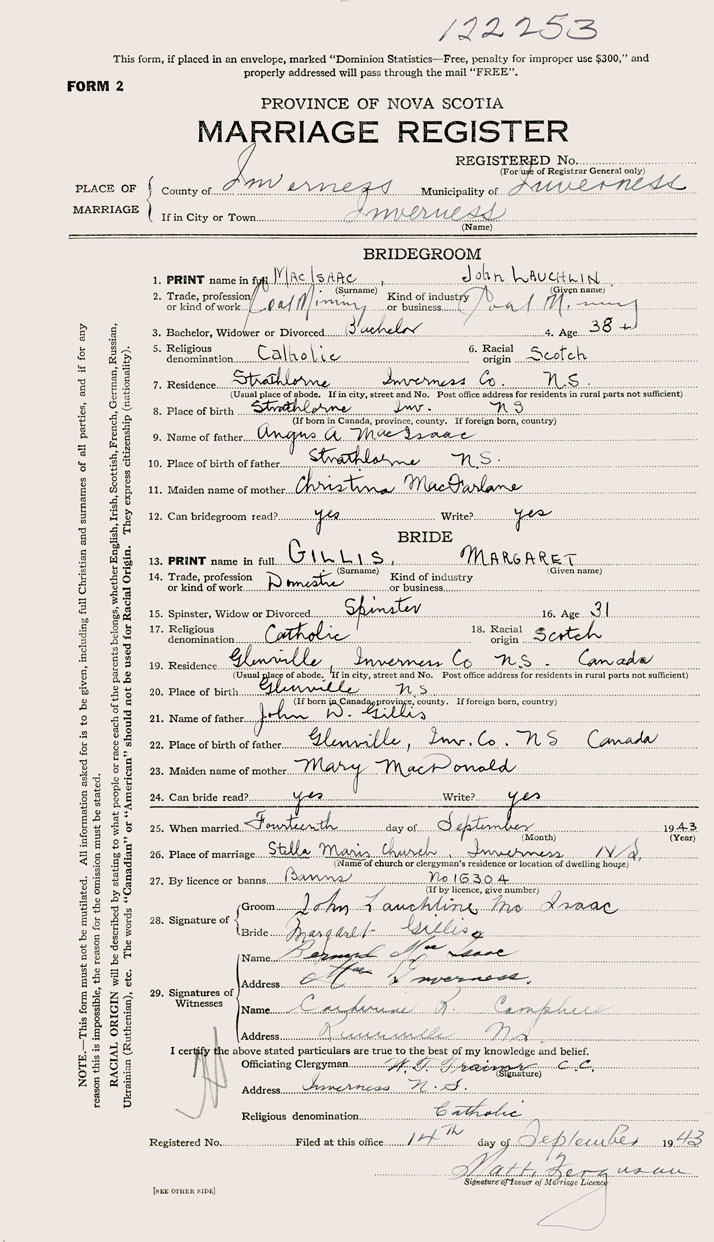 122253
This form, if placed in an envelope, marked "Dominion Statistics—Free, penalty for improper use $300," and
properly addressed will pass through the mail "FREE".
FORM 2
PROVINCE OF NOVA SCOTIA
MARRIAGE REGISTER
REGISTERED No.
(For use of Registrar General only)
PLACE OF MARRIAGE
County of Inverness Municipality of Inverness
If in City or Town Inverness
(Name)
BRIDEGROOM
1. PRINT name in full MacIsaac, John Lauchlin
(Surname) (Given name)
2. Trade, profession or kind of work Coal Mining Kind of industry or business Coal Mining
3. Bachelor, Widower or Divorced Bachelor 4. Age 38
5. Religious denomination Catholic 6. Racial origin Scotch
7. Residence Strathlorne Inverness Co. N.S.
(Usual place of abode. If in city, street and No. Post office address for residents in rural parts not sufficient)
8. Place of birth Strathlorne Inv. NS
(If born in Canada, province, county. If foreign born, country)
9. Name of father Angus A MacIsaac
10. Place of birth of father Strathlorne N.S.
11. Maiden name of mother Christina MacFarlane
12. Can bridegroom read? yes Write? yes
BRIDE
13. PRINT name in full GILLIS, MARGARET
(Surname) (Given name)
14. Trade, profession or kind of work Domestic Kind of industry or business
15. Spinster, Widow or Divorced Spinster 16. Age 31
17. Religious denomination Catholic 18. Racial origin Scotch
19. Residence Glenville, Inverness Co N.S. Canada
(Usual place of abode. If in city, street and No. Post office address for residents in rural parts not sufficient)
20. Place of birth Glenville NS
(If born in Canada, province, county. If foreign born, country)
21. Name of father John D. Gillis
22. Place of birth of father Glenville, Inv. Co. NS Canada
23. Maiden name of mother Mary MacDonald
24. Can bride read? yes Write? yes
25. When married Fourteenth day of September 1943
(Month) (Year)
26. Place of marriage Stella Maris Church, Inverness N.S.
(Name of church or clergyman's residence or location of dwelling house)
27. By licence or banns Banns No 16304
(If by licence, give number)
28. Signature of
Groom John Lauchline Mc Isaac
Bride Margaret Gillis
29. Signatures of Witnesses
Name Bernard Mac Isaac
Address Inverness.
Name Catherine R. Campbell
Address NS.
I certify the above stated particulars are true to the best of my knowledge and belief.
Officiating Clergyman Trainor C.C.
(Signature)
Address Inverness N.S.
Religious denomination Catholic
Registered No. Filed at this office 14TH day of September 1943
Matt. Ferguson
Signature of Issuer of Marriage Licence
[SEE OTHER SIDE]
NOTE.—This form must not be mutilated. All information asked for is to be given, including full Christian and surnames of all parties, and if for any
reason this is impossible, the reason for the omission must be stated.
RACIAL ORIGIN will be described by stating to what people or race each of the parents belongs, whether English, Irish, Scottish, French, German, Russian,
Ukrainian (Ruthenian), etc. The words "Canadian" or "American" should not be used for Racial Origin. They express citizenship (nationality).